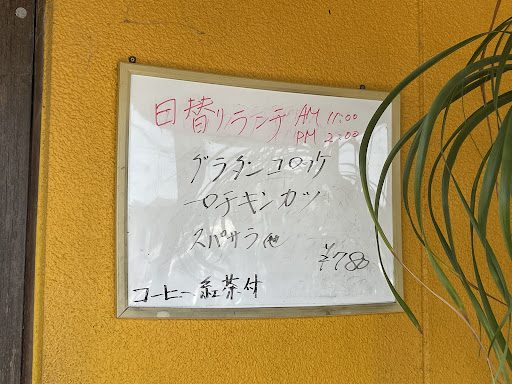 日替りランチ AM 11:00
PM 2:00
グラタンコロッケ
一口チキンカツ
スパサラ他
¥780
コーヒー 紅茶付